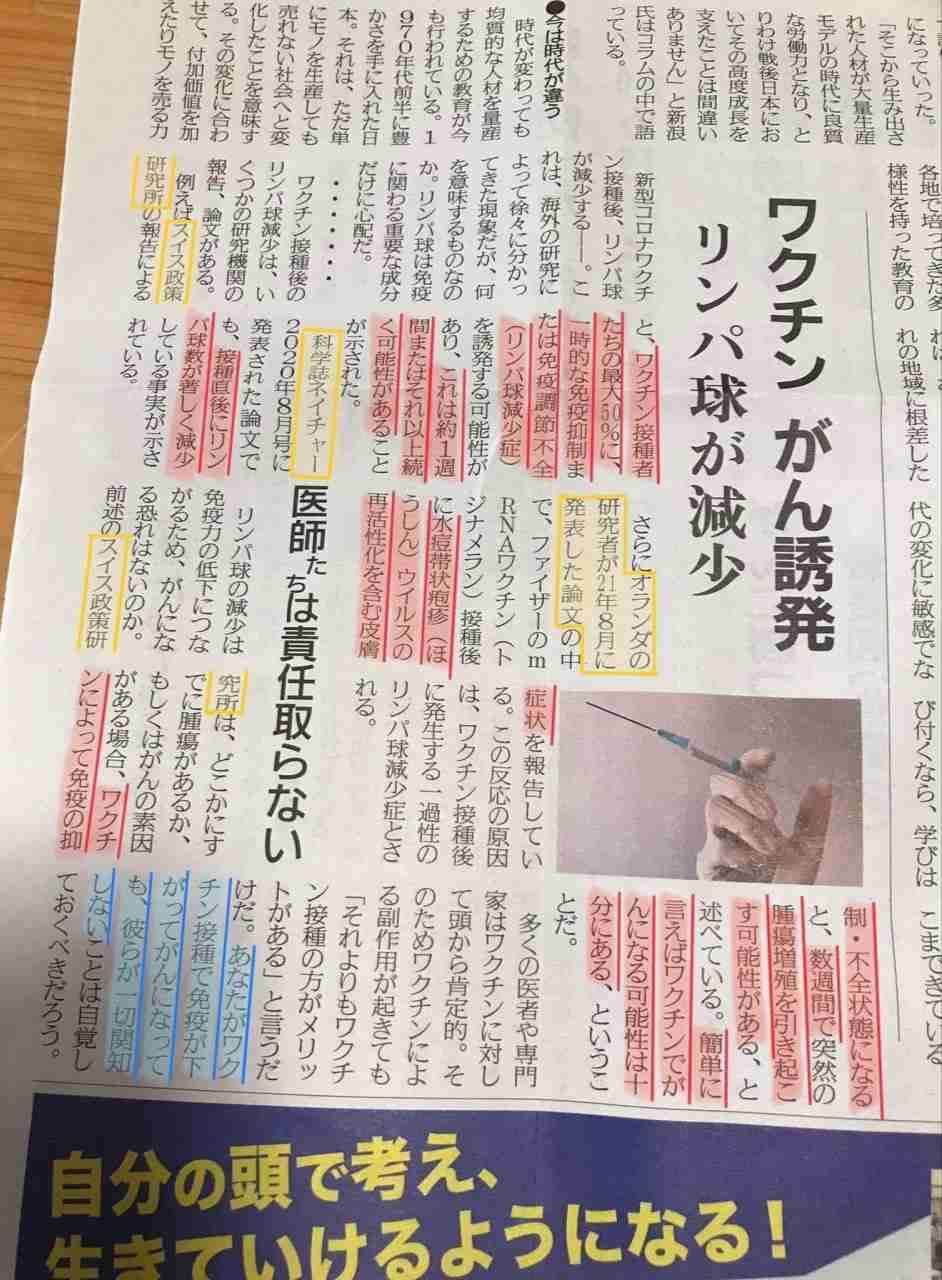 になっていった。
「そこから生み出さ
れた人材が大量生産
モデルの時代に良質
な労働力となり、と
りわけ戦後日本にお
いてその高度成長を
支えたことは間違い
ありません」と新浪
氏はコラムの中で語
っている。
●今は時代が違う
時代が変わっても
均質的な人材を量産
するための教育が今
も行われている。1
970年代前半に豊
かさを手に入れた日
本。それは、ただ単
にモノを生産しても
売れない社会へと変
化したことを意味す
る。その変化に合わ
せて、付加価値を加
えたりモノを売る力
各地で培ってきた多
様性を持った教育の
れの地域に根差した
代の変化に敏感でな
び付くなら、学びは
こまできている
ワクチン がん誘発
リンパ球が減少
新型コロナワクチ
ン接種後、リンパ球
が減少する――。こ
れは、海外の研究に
よって徐々に分かっ
てきた現象だが、何
を意味するものなの
か。リンパ球は免疫
に関わる重要な成分
だけに心配だ。
・・・・・・
ワクチン接種後の
リンパ球減少は、い
くつかの研究機関の
報告、論文がある。
例えばスイス政策
研究所の報告による
と、ワクチン接種者
たちの最大50%に、
一時的な免疫抑制ま
たは免疫調節不全
（リンパ球減少症）
を誘発する可能性が
あり、これは約1週
間またはそれ以上続
く可能性があること
が示された。
科学誌ネイチャー
2020年8月号に
発表された論文で
も、接種直後にリン
パ球数が著しく減少
している事実が示さ
れている。
さらにオランダの
研究者が21年8月に
発表した論文の中
で、ファイザーのm
RNAワクチン（ト
ジナメラン）接種後
に水痘帯状疱疹（ほ
うしん）ウイルスの
再活性化を含む皮膚
症状を報告してい
る。この反応の原因
は、ワクチン接種後
に発生する一過性の
リンパ球減少症とさ
れる。
医師たちは責任取らない
リンパ球の減少は
免疫力の低下につな
がるため、がんにな
る恐れはないのか。
前述のスイス政策研
究所は、どこかにす
でに腫瘍があるか、
もしくはがんの素因
がある場合、ワクチ
ンによって免疫の抑
制・不全状態になる
と、数週間で突然の
腫瘍増殖を引き起こ
す可能性がある、と
述べている。簡単に
言えばワクチンでが
んになる可能性は十
分にある、というこ
とだ。
多くの医者や専門
家はワクチンに対し
て頭から肯定的。そ
のためワクチンによ
る副作用が起きても
「それよりもワクチ
ン接種の方がメリッ
トがある」と言うだ
けだ。あなたがワク
チン接種で免疫が下
がってがんになって
も、彼らが一切関知
しないことは自覚し
ておくべきだろう。
自分の頭で考え、
生きていけるようになる！